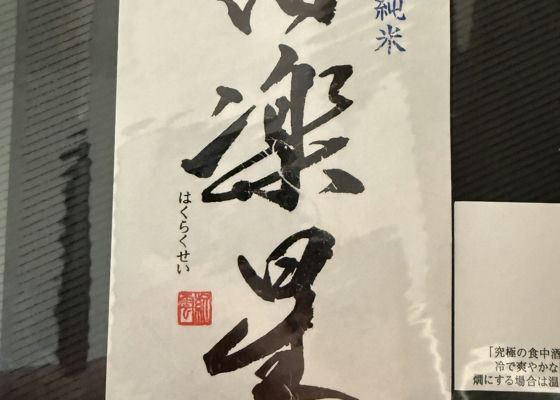 純米
楽星
はくらくせい
「究極の食中酒
冷で爽やかな
燗にする場合は温